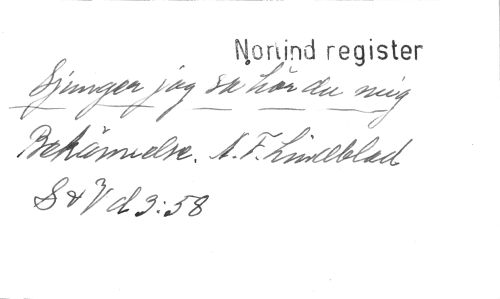 Norlind register
Sjunger jag så hör du mig
Bekännelse. A. F. Lindblad
S & V d 3:58